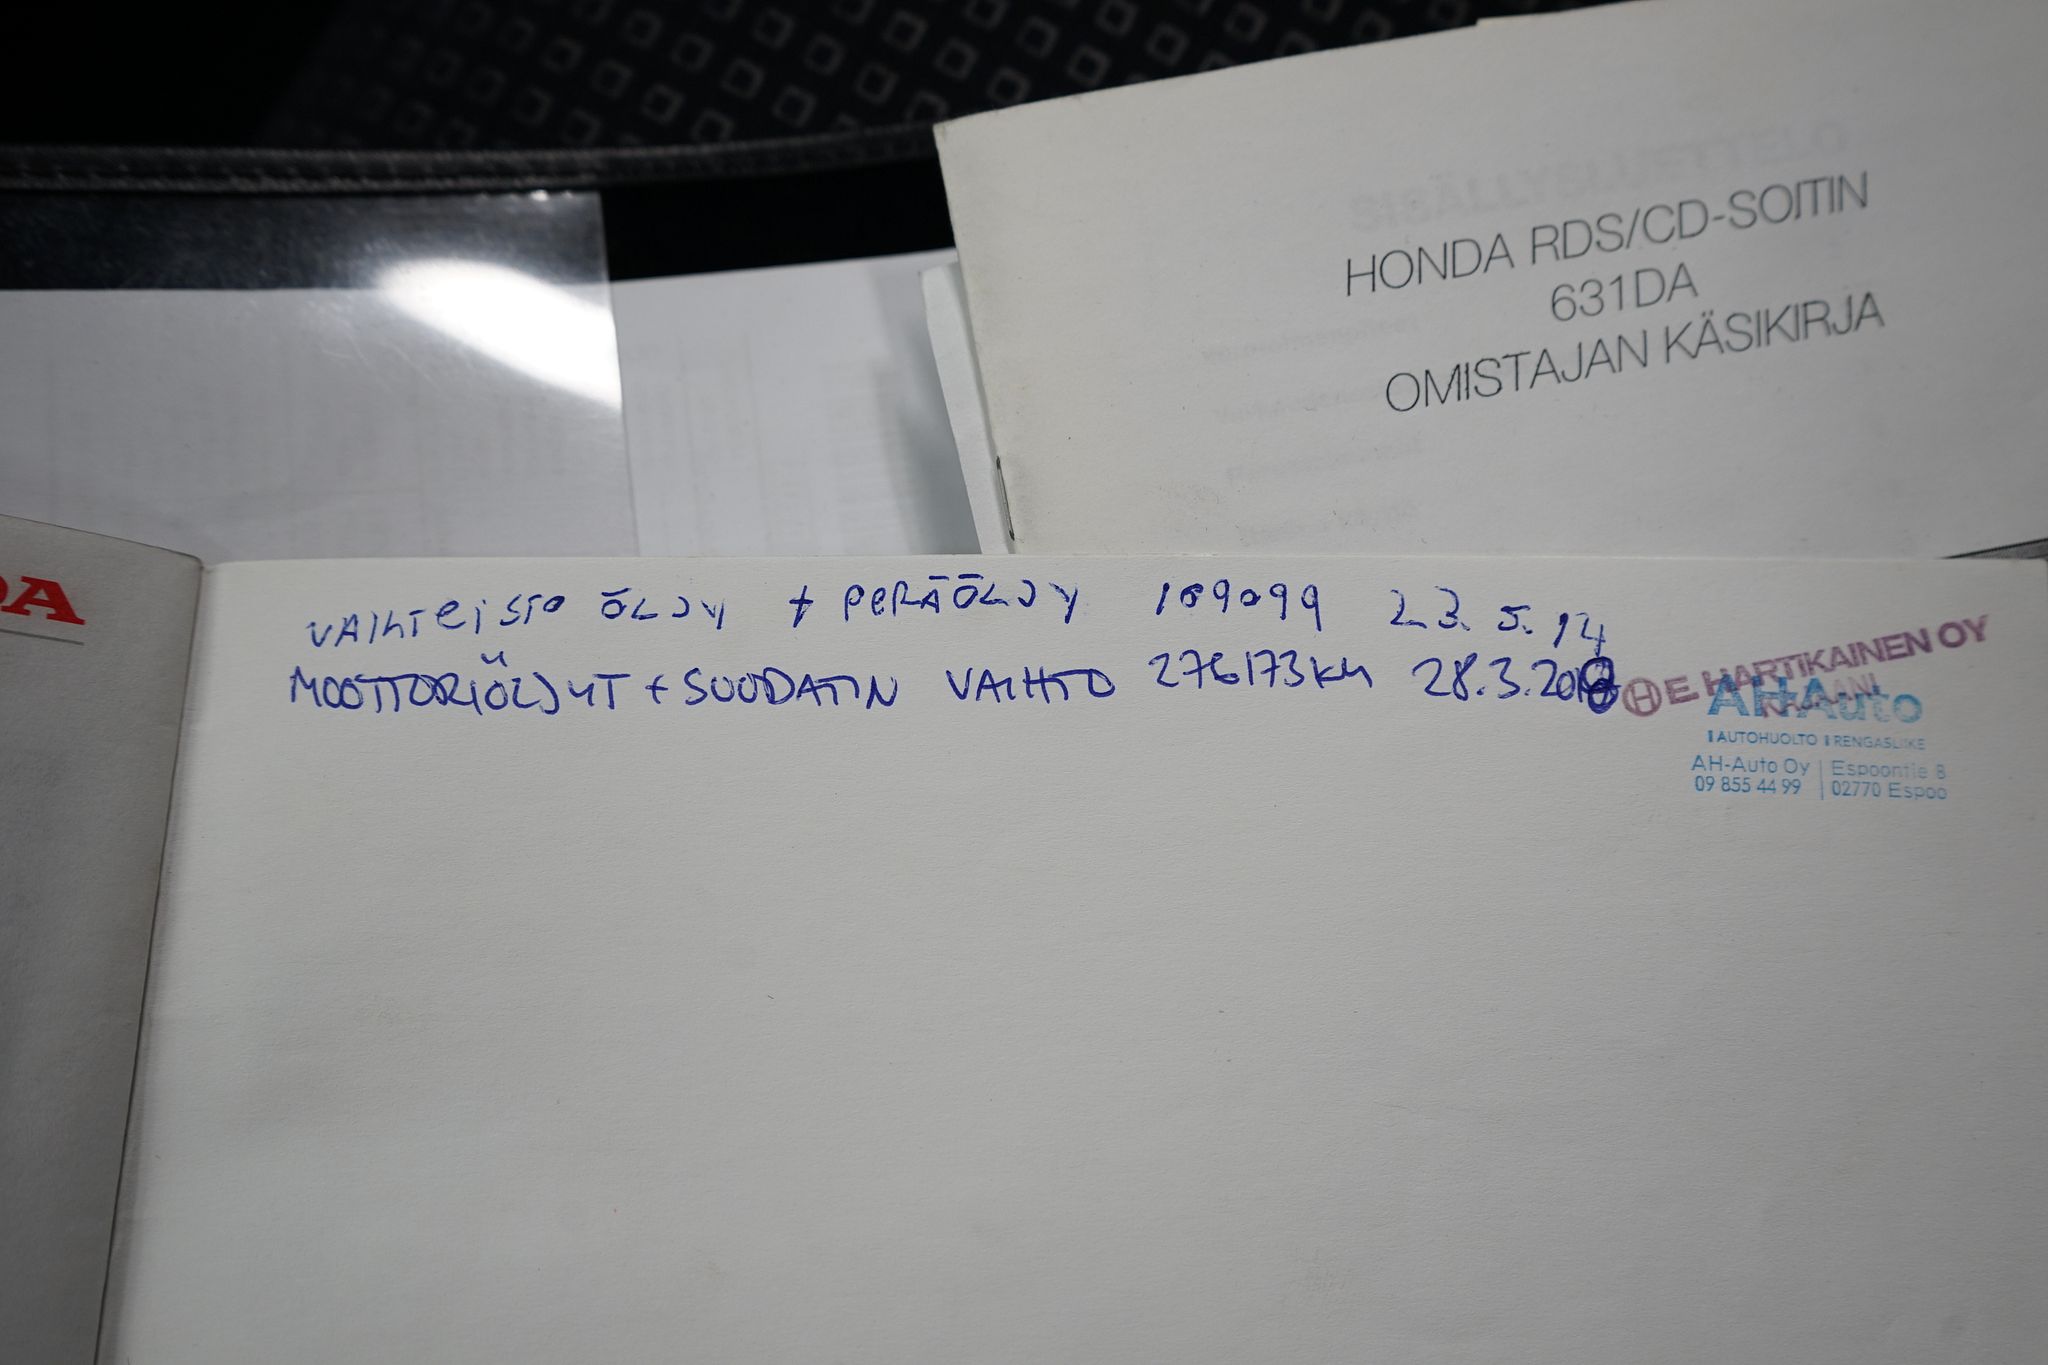 HONDA RDS/CD-SOITIN
631DA
OMISTAJAN KÄSIKIRJA
DA
VAIHTEISTO ÖLJY + PERÄÖLJY 169099 23.5.14
MOOTTORIÖLJYT + SUODATIN VAIHTO 276173KM 28.3.2018
H E. HARTIKAINEN OY
KAJAANI
AH Auto
AUTOHUOLTO RENGASLIIKE
AH-Auto Oy Espoontie 8
09 855 44 99 02770 Espoo